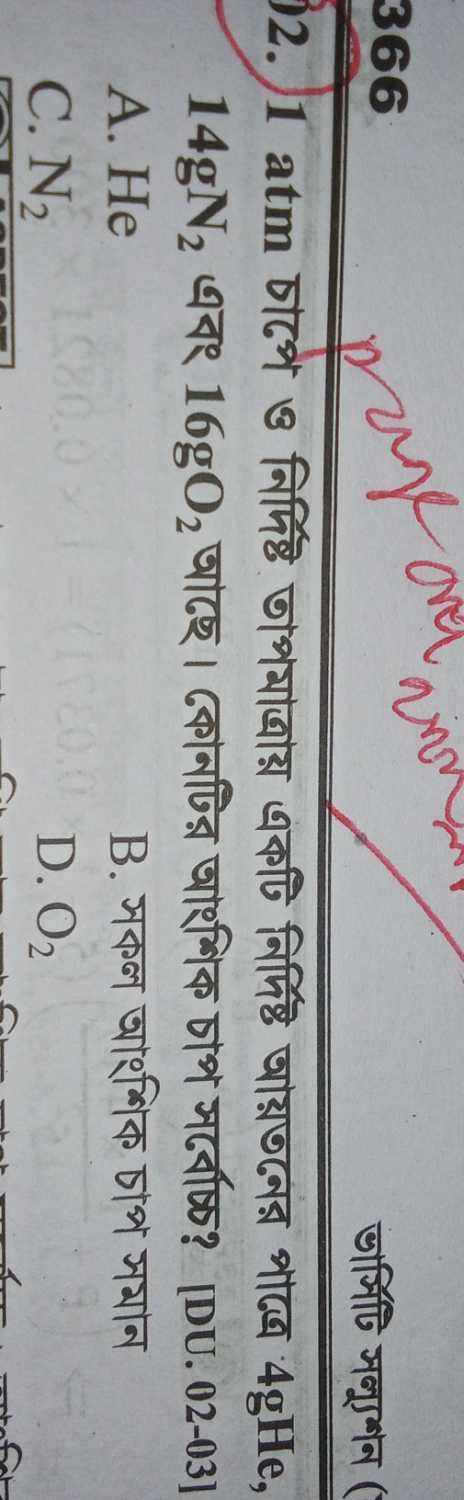 366
ভার্সিটি সল্যুশন (
02. 1 atm চাপে ও নির্দিষ্ট তাপমাত্রায় একটি নির্দিষ্ট আয়তনের পাত্রে 4gHe,
14gN₂ এবং 16gO₂ আছে। কোনটির আংশিক চাপ সর্বোচ্চ? [DU. 02-03]
A. He
B. সকল আংশিক চাপ সমান
C. N₂
D. O₂